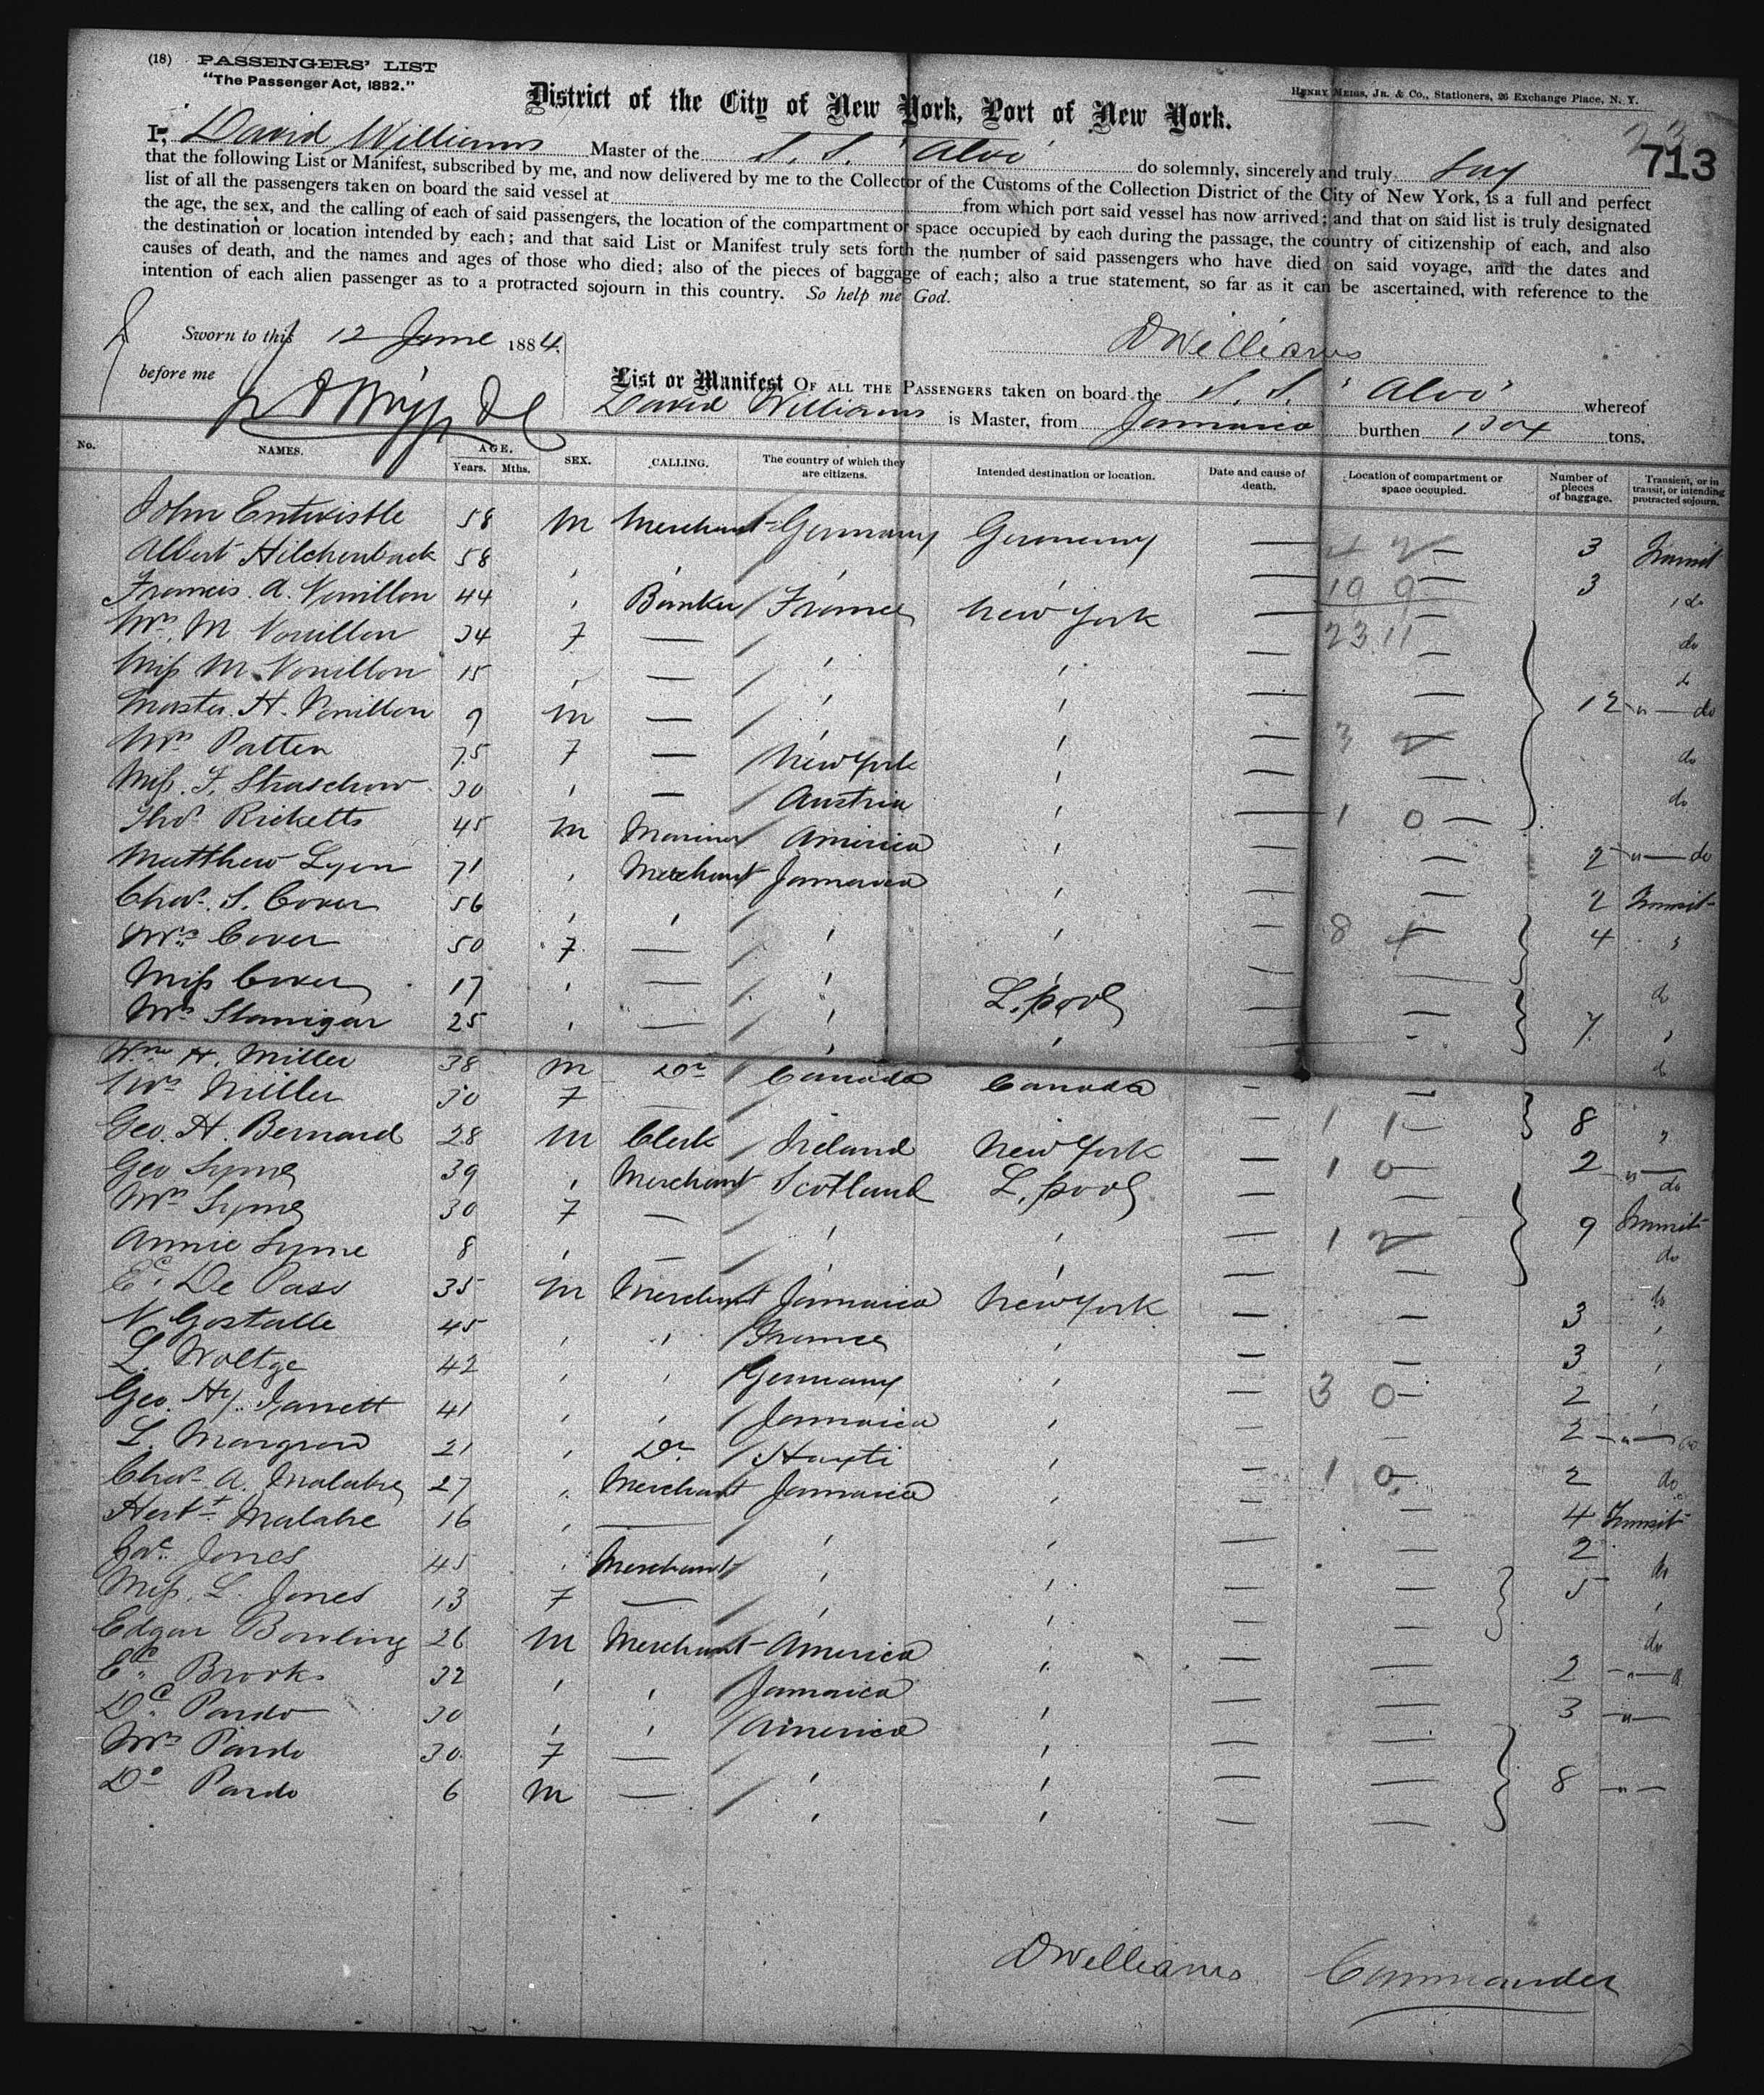 (18) PASSENGERS' LIST
"The Passenger Act, 1882."
Henry Meigs, Jr. & Co., Stationers, 26 Exchange Place, N. Y.
District of the City of New York, Port of New York.
713
I, David Williams Master of the S. S. "Alvo" do solemnly, sincerely and truly Say
that the following List or Manifest, subscribed by me, and now delivered by me to the Collector of the Customs of the Collection District of the City of New York, is a full and perfect
list of all the passengers taken on board the said vessel at from which port said vessel has now arrived; and that on said list is truly designated
the age, the sex, and the calling of each of said passengers, the location of the compartment or space occupied by each during the passage, the country of citizenship of each, and also
the destination or location intended by each; and that said List or Manifest truly sets forth the number of said passengers who have died on said voyage, and the dates and
causes of death, and the names and ages of those who died; also of the pieces of baggage of each; also a true statement, so far as it can be ascertained, with reference to the
intention of each alien passenger as to a protracted sojourn in this country. So help me God.
Sworn to this 12 June 1884
before me
DWilliams
List or Manifest OF ALL THE PASSENGERS taken on board the S. S. "Alvo" whereof
David Williams is Master, from Jamaica burthen tons.
No. NAMES. AGE. Years. Mths. SEX. CALLING. The country of which they are citizens. Intended destination or location. Date and cause of death. Location of compartment or space occupied. Number of pieces of baggage. Transient, or in transit, or intending protracted sojourn.
John Entwistle 58 M Merchant Germany Germany — — 3 Transit
Albert Hilchenback 58 ' ' ' ' — — 3 do
Francis. A. Vouillon 44 ' Banker France New York — —
Mrs. M Vouillon 34 F — ' ' — — do
Miss M. Vouillon 15 ' — ' ' — — do
Master. H. Vouillon 9 M — ' ' — — 12 " — do
Mrs Patten 75 F — New York ' — —
Miss. F. Straschow 30 ' — Austria ' — — do
Thos Ricketts 45 M Mariner America ' — — 2 " — do
Matthew Lyon 71 ' Merchant Jamaica ' — — 2 Transit
Chas. S. Cover 56 ' ' ' ' — — 4 '
Mrs Cover 50 F — ' ' — —
Miss Cover 17 ' — ' L.pool — — do
Mrs Stanigar 25 ' — ' ' — — 7 '
Wm H. Miller 38 M Dr Canada Canada — — do
Mrs Miller 30 F — — — 8 "
Geo. H. Bernard 28 M Clerk Ireland New York — — 2 " —
Geo Syme 39 ' Merchant Scotland L.pool — — do
Mrs Syme 30 F — ' ' — — 9 Transit
Annie Syme 8 ' — ' ' — — do
Ec. De Pass 35 M Merchant Jamaica New York — — 3 do
N Gostalle 45 ' ' France ' — — 3 '
L. Woltge 42 ' ' Germany ' — — 2 '
Geo. Hy. Jarrett 41 ' ' Jamaica ' — — 2 — " —
L. 21 ' Dr Hayti ' — — 2 do
Chas. A. Malabre 27 ' Merchant Jamaica ' — — 4 Transit
Herbt Malabre 16 ' — ' ' — — 2 do
Jas. Jones 45 ' Merchant ' ' — — 5 '
Miss. L. Jones 13 F — ' ' — — do
Edgar Bowling 26 M Merchant America ' — — 2 — " —
Ec. Brooks 32 ' ' Jamaica ' — — 3 — " —
Dc. Pardo 30 ' ' America ' — —
Mrs Pardo 30 F — ' ' — — 8 — " —
Do Pardo 6 M — ' ' — —
DWilliams Commander